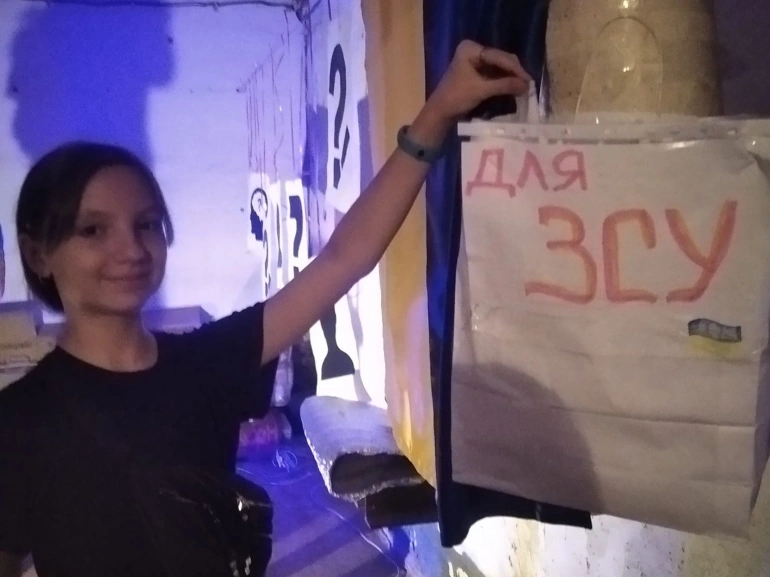 для
ЗСУ
?
?